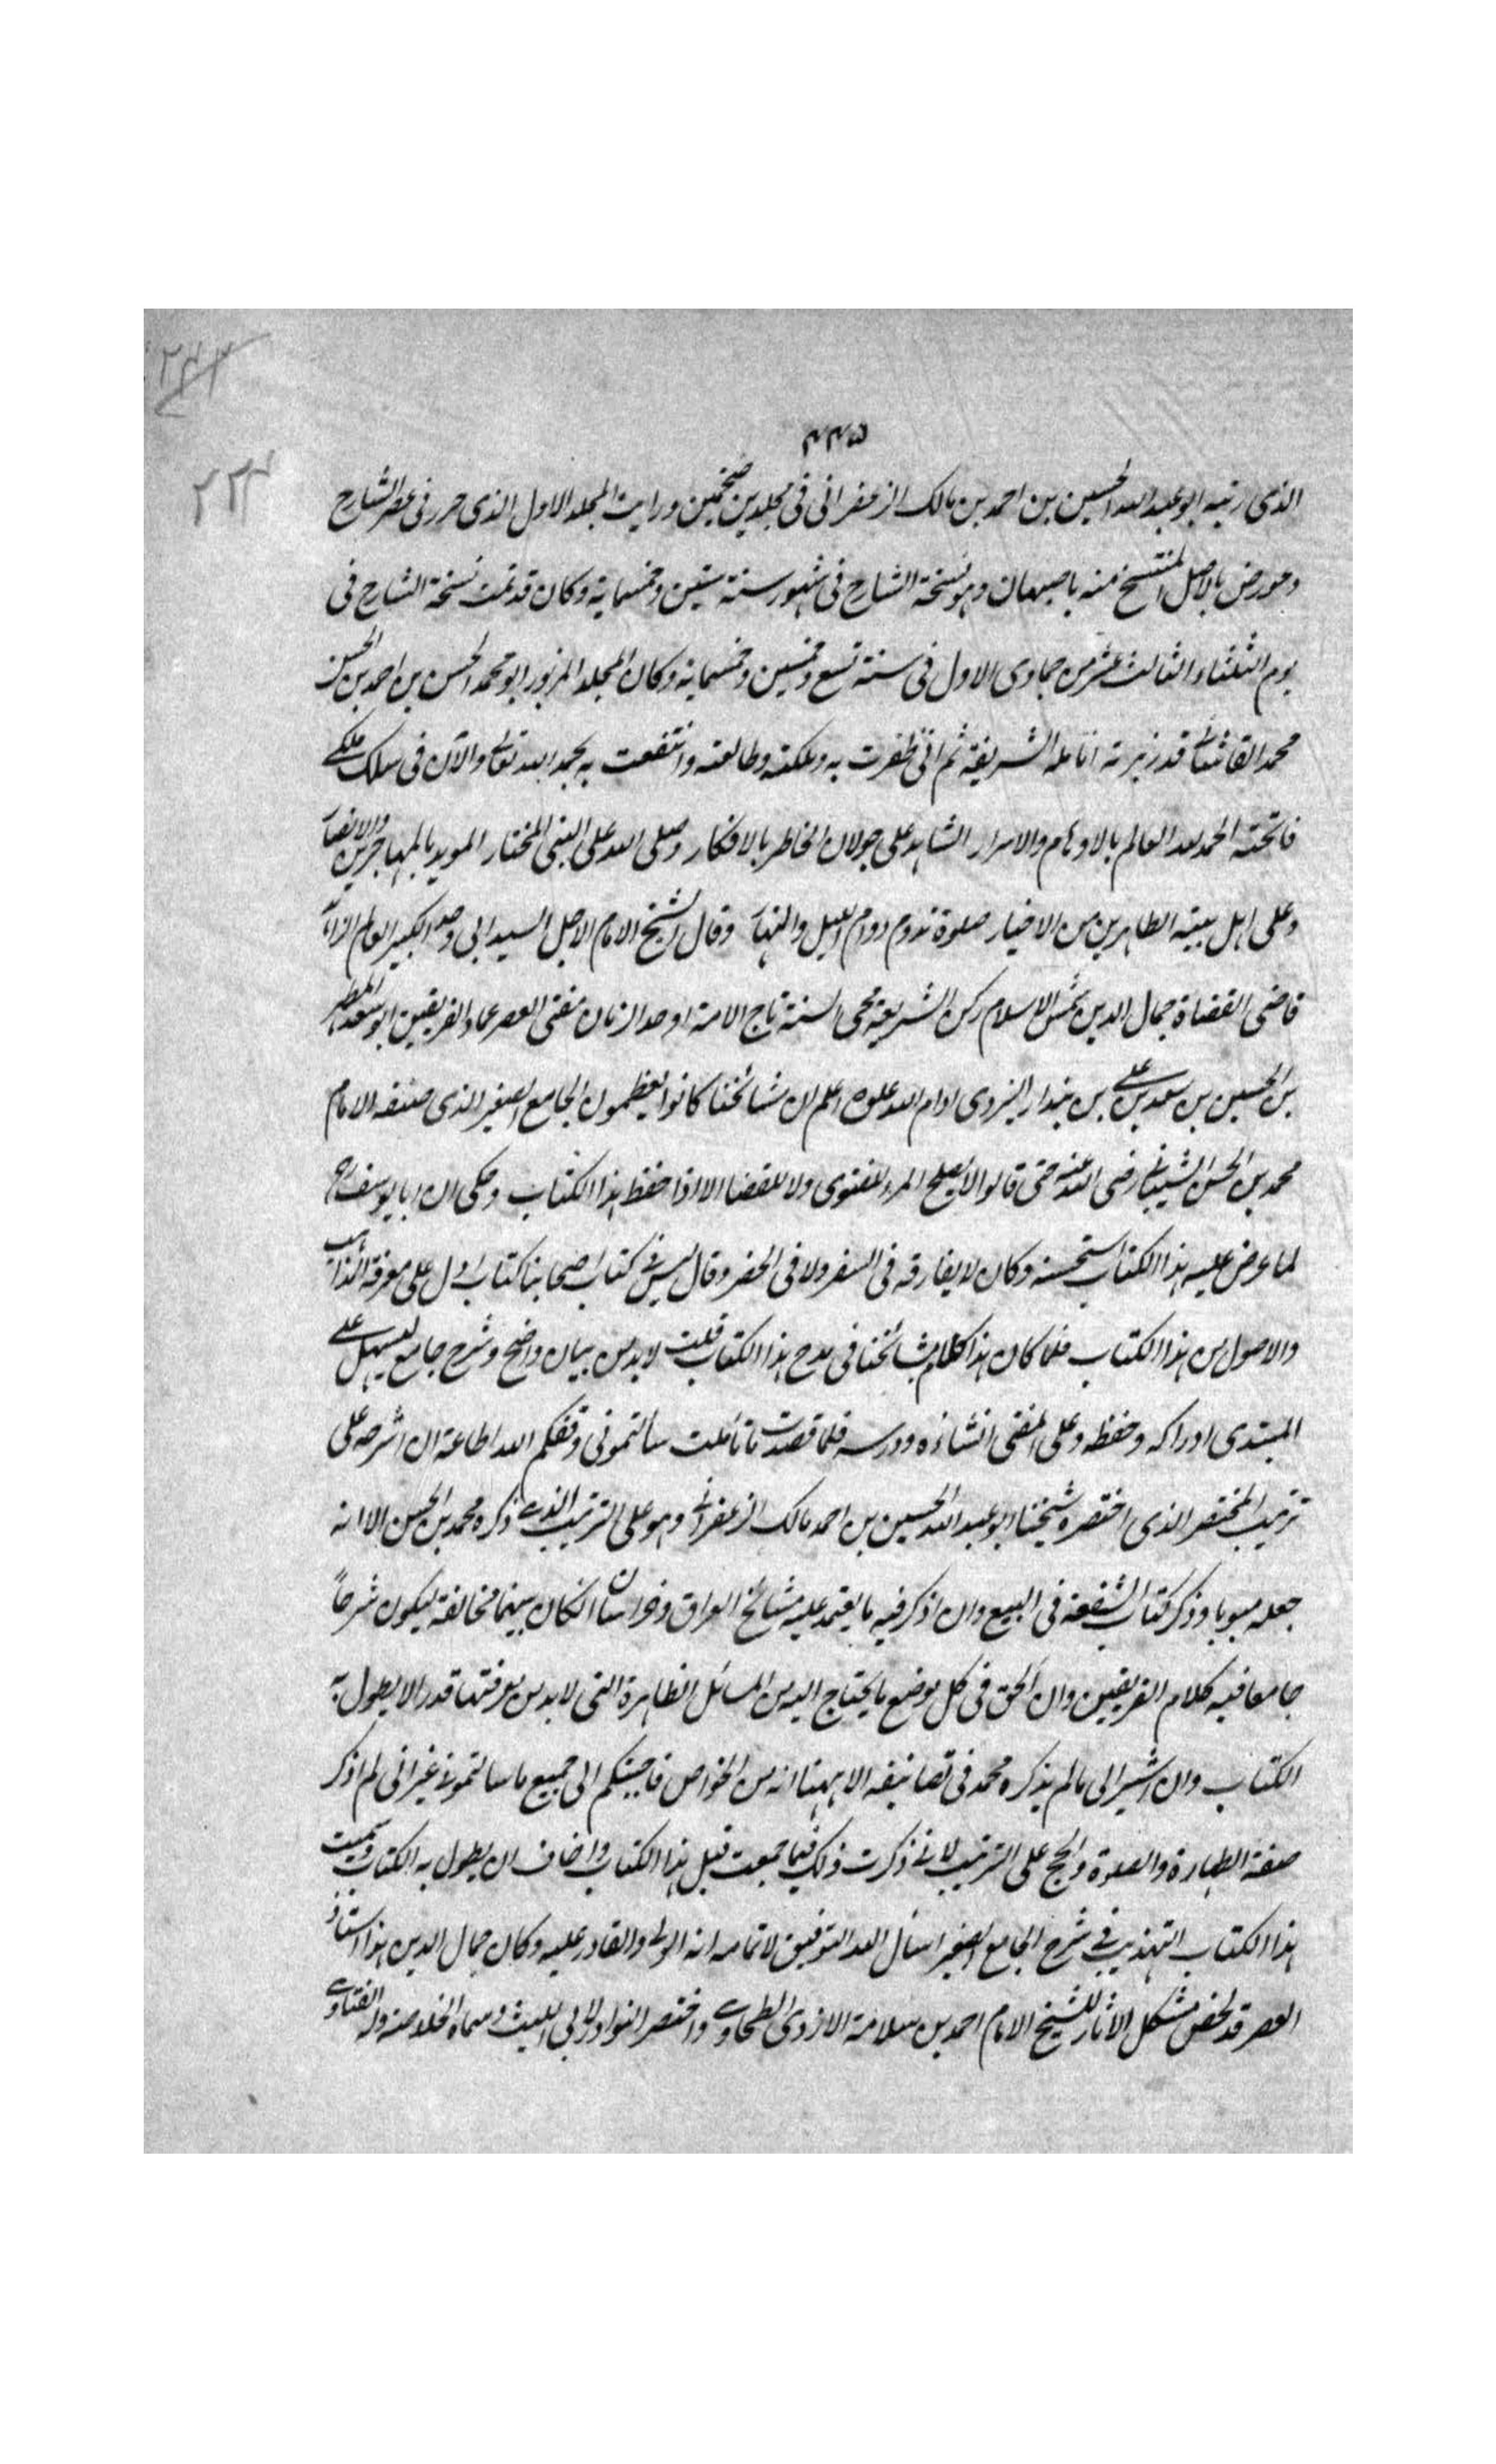 ٢٣٢
٢٢٣
٤٤٥
الذى رتبه ابو عبد الله الحسين بن احمد بن مالك الزعفرانى فى مجلدين ضخمين ورايت المجلد الاول الذى حرر فى عصر الشارح
وعورض بالاصل المنتسخ منه باصبهان وهو نسخة الشارح فى شهور سنة ستين وخمسماية وكان قد تمت نسخة الشارح فى
يوم الثلثاء الثالث عشر من جمادى الاول فى سنة تسع وخمسين وخمسماية وكان المجلد المزبور ابو محمد الحسن بن احمد بن الحسين
محمد القاشانى قد زبرته انامله الشريفة ثم انى ظفرت به وملكته وطالعته وانتفعت به بحمد الله تعالى والآن فى سلك ملكى
فاتحته الحمد لله العالم بالاوهام والاسرار الشاهد على جولان الخاطر بالافكار وصلى الله على النبى المختار المويد بالمهاجرين والانصار
وعلى اهل بيته الطاهرين من الاخيار صلوة تدوم دوام الليل والنهار وقال الشيخ الامام الاجل السيد ابى الكبير العالم الزاهد
قاضى القضاة جمال الدين شمس الاسلام ركن الشريعة محى السنة تاج الامة اوحد الزمان مفتى العصر عماد الفريقين ابو سعد المطهر
بن الحسين بن سعد بن على بن بندار اليزدى ادام الله علوه اعلم ان مشائخنا كانوا يعظمون الجامع الصغير الذى صنفه الامام
محمد بن الحسن الشيبانى رضى الله عنه حتى قالوا لا يصلح المرء للفتوى ولا للقضا الا اذا حفظ هذا الكتاب وحكى ان ابا يوسف رح
لما عرض عليه هذا الكتاب استحسنه وكان لا يفارقه فى السفر ولا فى الحضر وقال ليس فى كتاب اصحابنا كتاب ادل على معرفة المذاهب
والاصول من هذا الكتاب فلما كان هذا كلام مشائخنا فى مدح هذا الكتاب قلت لا بد من بيان واضح وشرح جامع ليسهل على
المبتدى ادراكه وحفظه وعلى المفتى انشاؤه ودرسه فلما قصدت ما تاملت سألتمونى وفقكم الله اطاعة ان اشرحه على
ترتيب المختصر الذى اختصره شيخنا ابو عبد الله الحسين بن احمد مالك الزعفرانى وهو على الترتيب الذى ذكره محمد بن الحسن الا انه
جعله مبوبا وذكر كتاب الشفعة فى البيع وان اذكر فيه ما يعتمد عليه مشائخ العراق وخراسان انكان بينهما مخالفة ليكون شرحاً
جامعا فيه كلام الفريقين وان الحق فى كل موضع ما يحتاج اليه من المسائل الظاهرة التى لا بد من معرفتها قدر الا يطول به
الكتاب وان اشير الى ما لم يذكره محمد فى تصانيفه الا ههنا انه من الخواص فاجبتكم الى جميع ما سالتمونى غير انى لم اذكر
صفة الطهارة والصلوة والحج على الترتيب لانى ذكرت ذلك فيما جمعت قبل هذا الكتاب واخاف ان يطول به الكتاب وسميت
هذا الكتاب التهذيب فى شرح الجامع الصغير اسأل الله التوفيق لاتمامه انه الولى والقادر عليه وكان جمال الدين هذا استاذ
العصر قد لخص مشكل الاثار للشيخ الامام احمد بن سلامة الازدى الطحاوى واختصر النوادر لابى الليث وسماه الخلاصة وله الفتاوى